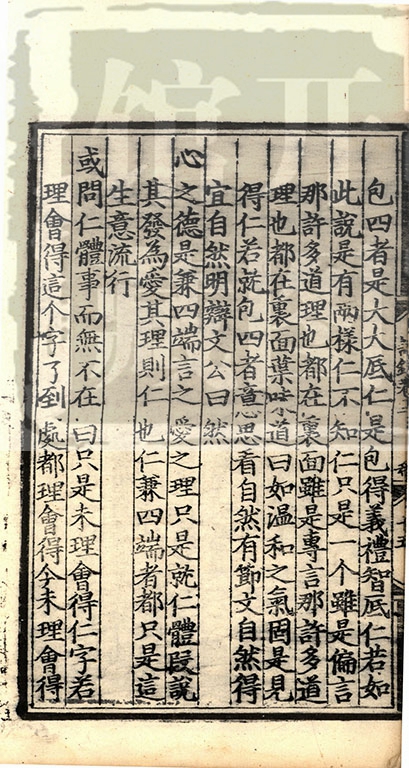 包四者是大大底仁是包得義禮智底仁若如
此說是有兩樣仁不知仁只是一个雖是偏言
那許多道理也都在裏面雖是專言那許多道
理也都在裏面葉味道曰如温和之氣固是見
得仁若就包四者意思看自然有節文自然得
宜自然明辯文公曰然
心之德是兼四端言之愛之理只是就仁體段說
其發為愛其理則仁也仁兼四端者都只是這
生意流行
或問仁體事而無不在曰只是未理會得仁字若
理會得這个字了到處都理會得今未理會得